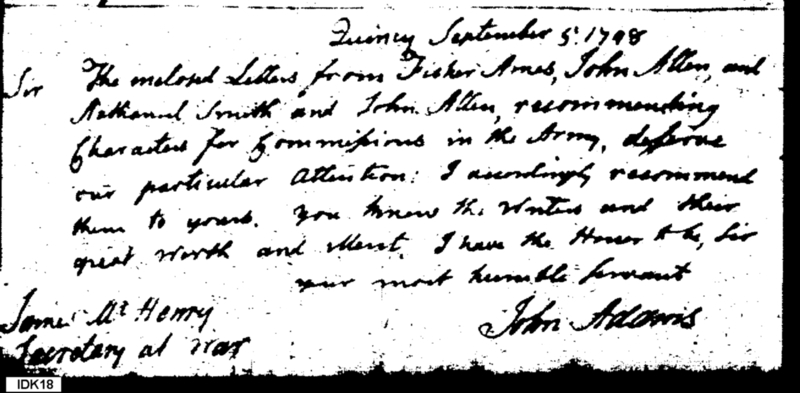 Quincy September 5. 1798
Sir The inclosed Letters from Fisher Ames, John Allen, and
Nathaniel Smith and John Allen, recommending
Characters for Commissions in the Army, deserve
our particular Attention: I accordingly recommend
them to yours. You know the Writers and their
great Worth and Merit. I have the Honor to be, Sir
your most humble Servant
John Adams
James McHenry
Secretary at War
IDK18